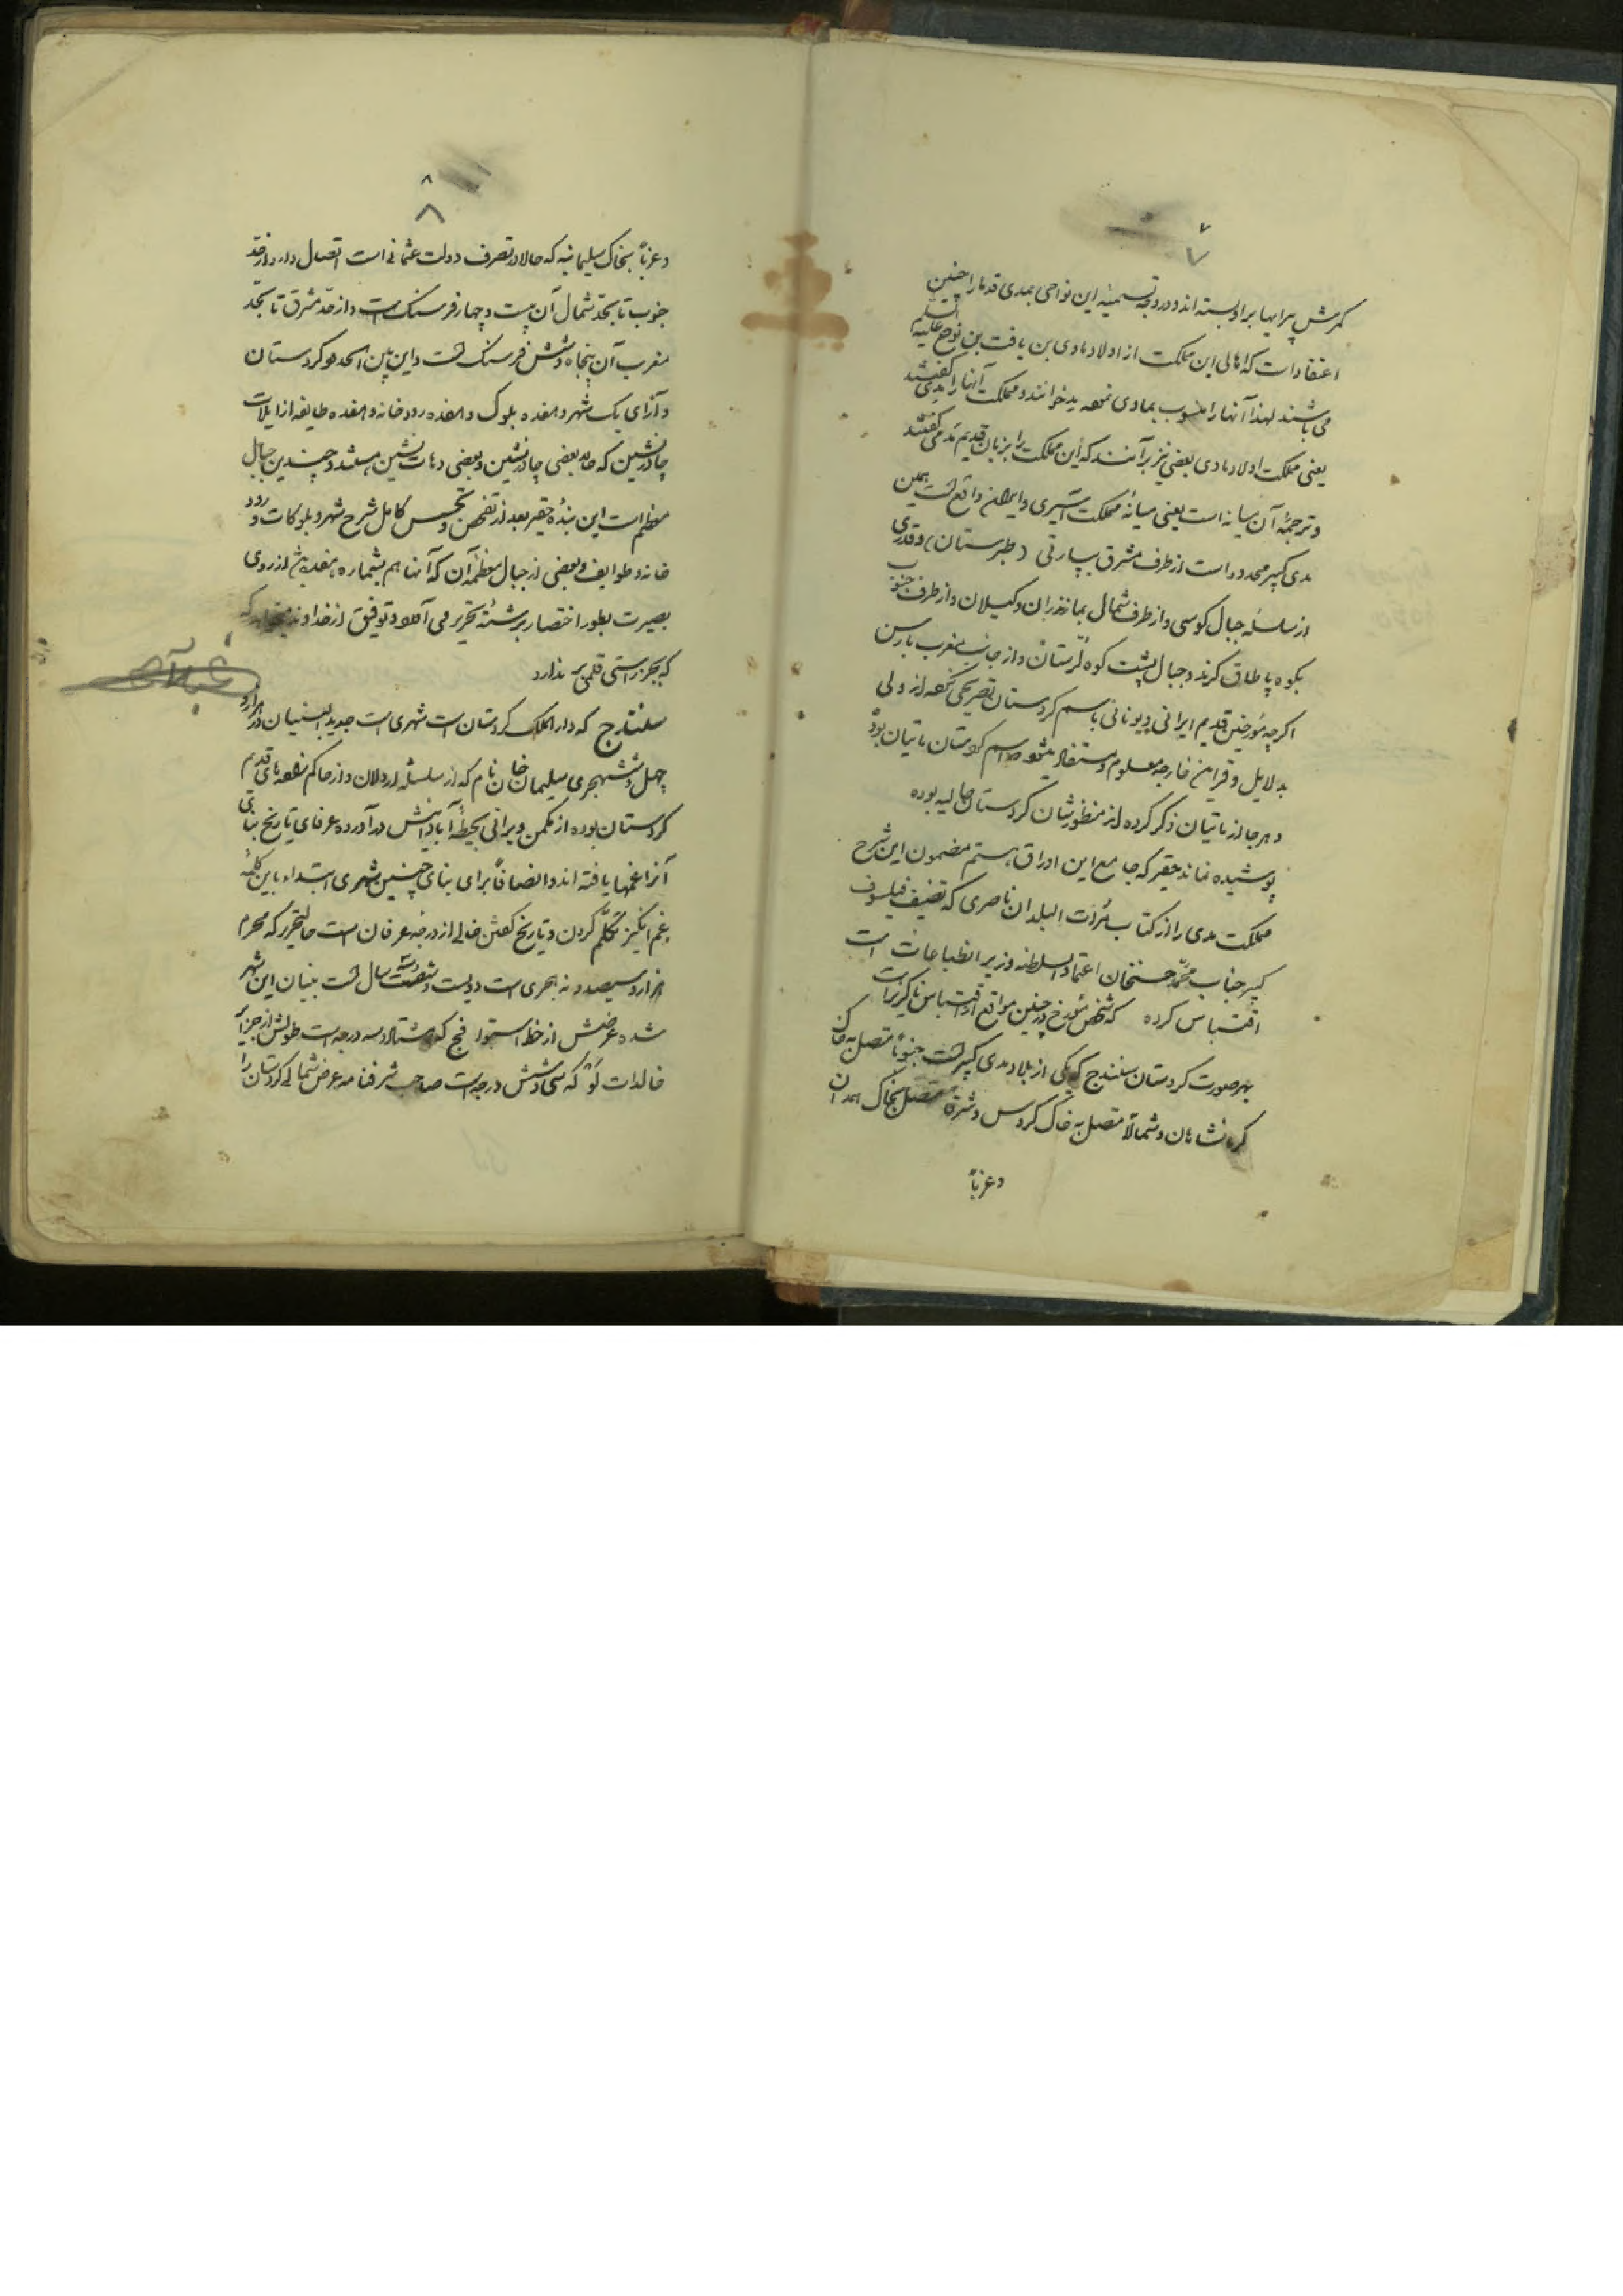 ۷
۷
کمرش پیرایها براو بسته اند و در وجه تسمیهٔ این نواحی بمدی قدما را چنین
اعتقاد است که اهالی این مملکت از اولاد مادی بن یافت بن نوح علیه السلم
می باشند لهذا آنها را منسوب بمادی نموده مدی خوانند و مملکت آنها را مدی گفتند
یعنی مملکت اولاد مادی بعضی نیز برآنند که این مملکت را بزبان قدیم مدمی گفتند
و ترجمهٔ آن میانه است یعنی میانهٔ مملکت آسیری و ایران واقع است همین
مدی کبیر محدود است از طرف مشرق بپارتی (طبرستان) و قدری
از سلسله جبال کوسی و از طرف شمال بمازندران و کیلان و از طرف جنوب
بکوه پاطاق کرند و جبال پشت کوه لرستان و از جانب مغرب بارمن
اکرچه مورخین قدیم ایرانی و یونانی باسم کردستان تصریحی نکرده اند ولی
بدلایل و قراین خارجه معلوم و مستفاد میشود اسم کردستان ماتیان بوده
و هرجا از ماتیان ذکر کرده اند منظورشان کردستان حالیه بوده
پوشیده نماند حقیر که جامع این اوراق هستم مضمون این شرح
مملکت مدی را از کتاب مرات البلدان ناصری که تصنیف فیلسوف
کبیر جناب محمد حسنخان اعتماد السلطنه وزیر انطباعات است
اقتباس کرده که شخص مورخ در چنین مواقع از اقتباس ناکزیر است
بهر صورت کردستان سنندج که یکی از بلاد مدی کبیر است جنوباً متصل به خاک
کرمانشاهان و شمالاً متصل به خاک کروس و شرقاً متصل بخاک همدان
و غرباً
۸
۸
و غرباً بخاک سلیمانیه که حالا در تصرف دولت عثمانی است اتصال دارد از حد
جنوب تا بحد شمال آن بیست و چهار فرسنک است و از حد مشرق تا بحد
مغرب آن پنجاه و شش فرسنک است و این بین الحدود کردستان
دارای یک شهر و هفده بلوک و هفده رودخانه و هفده طایفه از ایلات
چادرنشین که حال بعضی چادرنشین و بعضی دهات نشین هستند و چندین جبال
معظم است این بندهٔ حقیر بعد از تفحص و تجسس کامل شرح شهر و بلوکات و رود
خانه و طوایف و بعضی از جبال معظمهٔ آن که آنها هم بشماره هفده از روی
بصیرت بطور اختصار برشتهٔ تحریر می آورد و توفیق از خداوند میخواهد که
که بجز راستی قلمی بر ندارد
سنندج که دارالملک کردستان است شهری است جدید البنیان در هزار و
چهل و شش هجری سلیمان خان نام که از سلسلهٔ اردلان و از حاکم زاده های قدیم
کردستان بوده از مکمن ویرانی بحیطهٔ آبادانیش در آورده عرفای تاریخ بنای
آنرا غمها یافته اند و انصافاً برای بنای چنین شهری ابتداء باین کلمهٔ
غم انکیز تکلم کردن و تاریخ کفتن خالی از درجهٔ عرفان است حالتحریر که محرم
هزار و سیصد و نه هجری است دویست و شصت سال است بنیان این شهر
شده عرضش از خط استوا فج که هشتاد و سه درجه است طولش از جزایر
خالدات لو که سی و شش درجه است صاحب شرفنامه عرض شمالی کردستان را